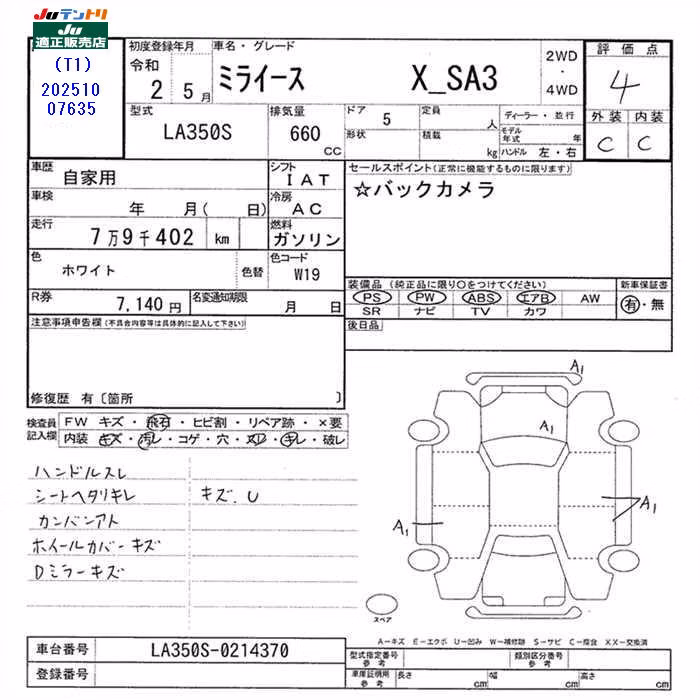 Juテントリ
Ju適正販売店
(T1)
202510
07635
初度登録年月
令和
2 5月
車名・グレード
ミライース X_SA3
2WD
・
4WD
評価点
4
外装 内装
C C
型式
LA350S
排気量
660
CC
ドア
5
形状
定員
人
積載
kg
ディーラー・並行
モデル年式 年
ハンドル 左・右
車歴
自家用
シフト
IAT
車検
年 月( 日)
冷房
AC
走行
7万9千402 km
燃料
ガソリン
色
ホワイト
色替
色コード
W19
R券
7,140円
名変通知期限
月 日
セールスポイント(正常に機能するものに限ります)
☆バックカメラ
装備品(純正品に限り○をつけてください)
PS PW ABS エアB AW
SR ナビ TV カワ
新車保証書
有・無
後日品
注意事項申告欄(不具合内容等は具体的に記入して下さい)
修復歴 有〔箇所 〕
検査員
記入欄
FW キズ・飛石・ヒビ割・リペア跡・×要
内装 キズ・汚レ・コゲ・穴・スレ・キレ・破レ
ハンドルスレ
シートヘタリキレ キズ.U
カンバンアト
ホイールカバーキズ
Dミラーキズ
A1
A1
A1
A1
スペア
A―キズ E―エクボ U―凹み W―補修跡 S―サビ C―腐食 XX―交換済
車台番号
LA350S-0214370
登録番号
型式指定番号
参考
類別区分番号
参考
車庫証明用
参考
長さ cm
幅 cm
高さ cm